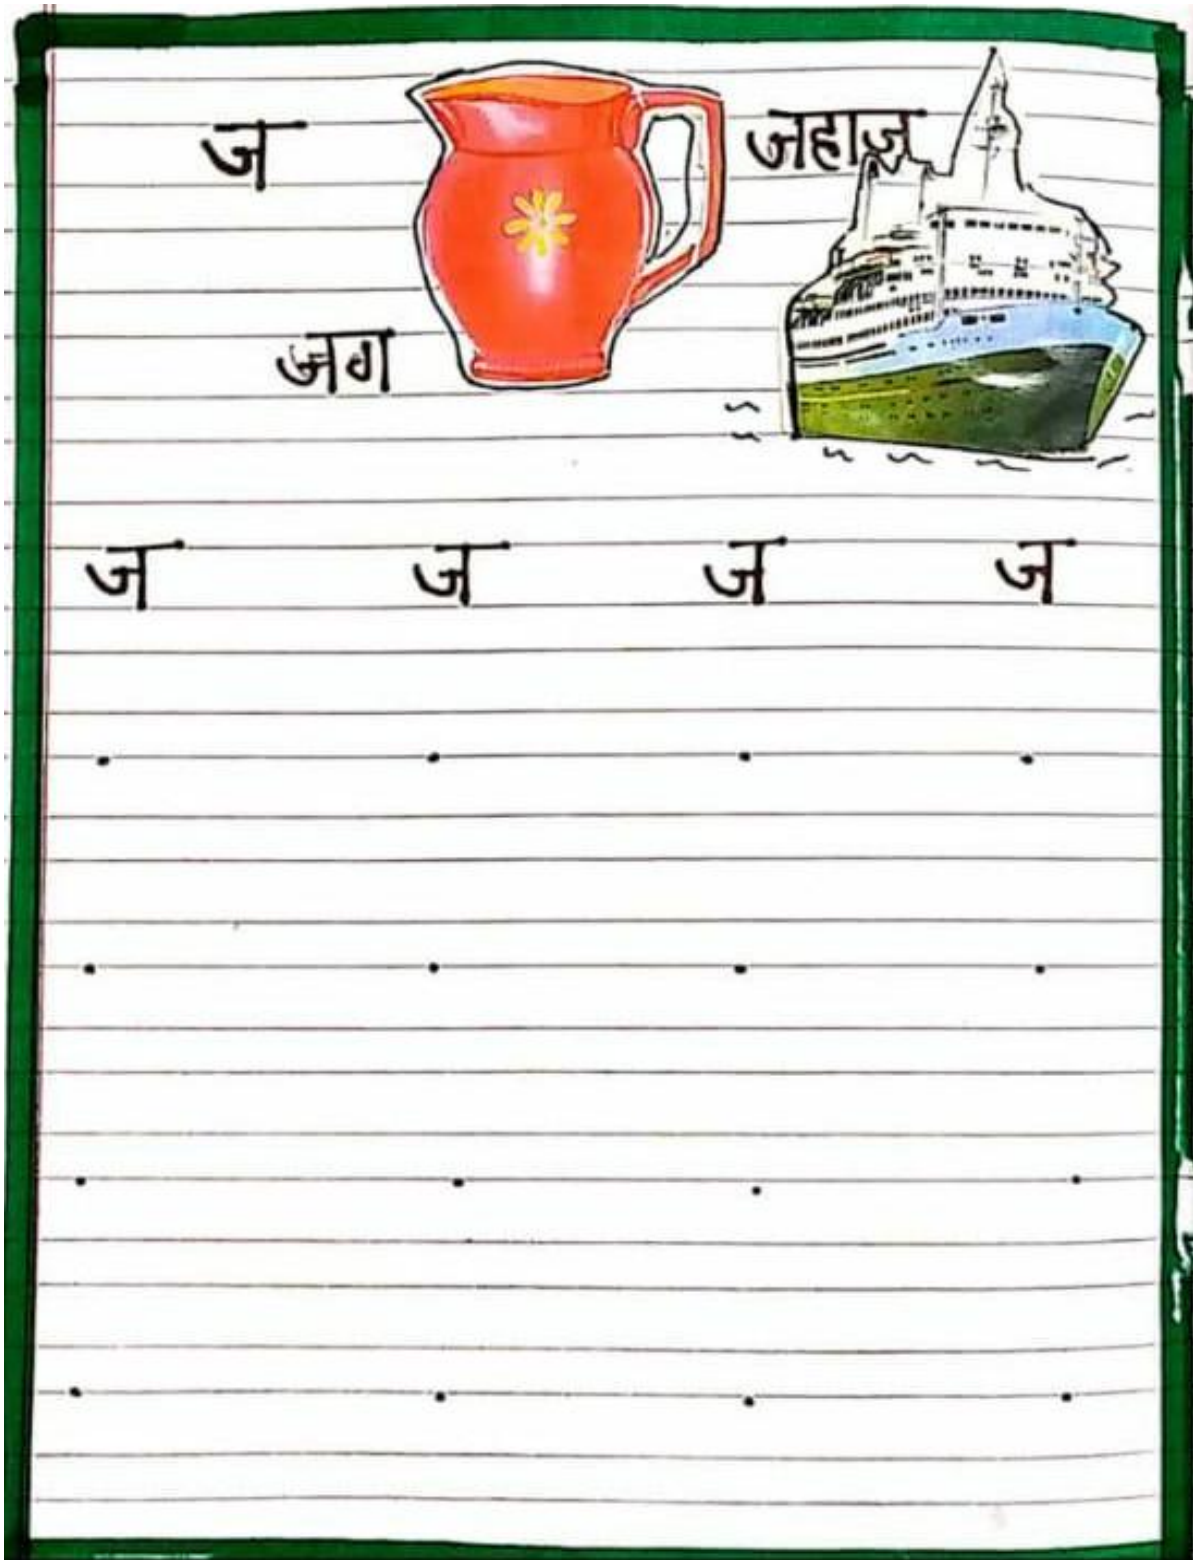 ज जहाज
जग
ज ज ज ज